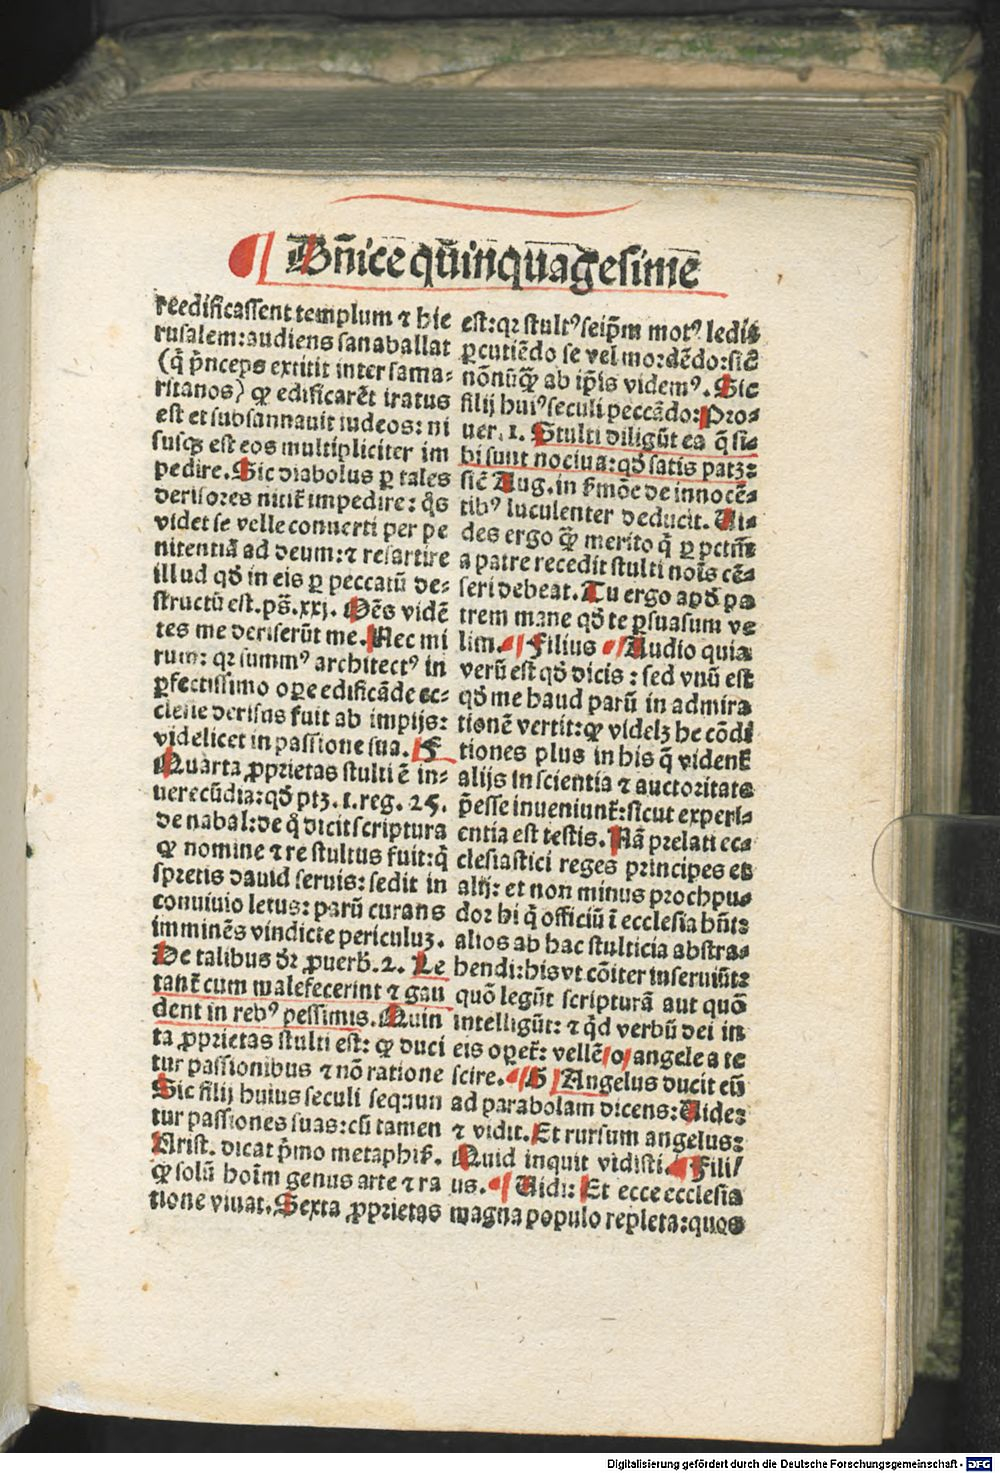 Dn̄ice qūinquagesime̅
reedificassent templum ⁊ hie
rusalem: audiens sanaballat
(q̄ p̄nceps extitit inter sama⸗
ritanos) ꝙ edificarēt iratus
est et subsannauit iudeos: ni
susqꝫ est eos multipliciter im
pedire. Sic diabolus ꝑ tales
derisores nitit᷑ impedire: q̄s
videt se velle conuerti per pe
nitentiā ad deum: ⁊ resartire
illud qḋ in eis ꝑ peccatū de⸗
structū est. ps̄. xxj. Oēs vidē
tes me deriserūt me. Nec mi
rum: qꝛ summꝰ architectꝰ in
ꝑfectissimo oꝑe edificāde ec⸗
clesie derisus fuit ab impijs:
videlicet in passione sua. F
Quarta ꝓprietas stulti ē in⸗
uerecūdia: qḋ ptꝫ. 1. reg. 25.
de nabal: de q̄ dicit scriptura
ꝙ nomine ⁊ re stultus fuit: q̄
spretis dauid seruis: sedit in
conuiuio letus: parū curans
imminēs vindicte periculuꝫ.
De talibus dr̄ ꝓuerb̄. 2. Le
tant᷑ cum malefecerint ⁊ gau
dent in rebꝰ pessimis. Quin
ta ꝓprietas stulti est: ꝙ duci
tur passionibus ⁊ nō ratione
Sic filij huius seculi sequun
tur passiones suas: cū tamen
Arist. dicat p̄mo metaphi᷑.
ꝙ solū hoīm genus arte ⁊ ra
tione viuat. Sexta ꝓprietas
est: qꝛ stultꝰ seip̄m motꝰ ledit
ꝑcutiēdo se vel mordēdo: sic̄
nōnūꝙ̄ ab ip̄is videmꝰ. Sic
filij huiꝰ seculi peccādo: Pro⸗
uer. 1. Stulti diligūt ea q̄ si⸗
bi sunt nociua: qḋ satis patꝫ:
sic̄ Aug. in ẜmōe de innocē⸗
tibꝰ luculenter deducit. Ui⸗
des ergo ꝙ̄ merito q̄ ꝑ pctm̄
a patre recedit stulti noīs cē⸗
seri debeat. Tu ergo apḋ pa
trem mane qḋ te ꝑsuasum ve
lim. ¶ Filius ¶ Audio quia
verū est qḋ dicis: sed vnū est
qḋ me haud parū in admira
tionē vertit: ꝙ videlꝫ he cōdi
tiones plus in his q̄ vident᷑
alijs in scientia ⁊ auctoritate
p̄esse inueniunt᷑: sicut experi⸗
entia est testis. Nā prelati ec⸗
clesiastici reges principes et
alij: et non minus prochpu⸗
dor hi q̄ officiū ī ecclesia hn̄t:
alios ab hac stulticia abstra⸗
hendi: his vt cōiter inseruiūt:
quō legūt scripturā aut quō
intelligūt: ⁊ qd̄ verbū dei in
eis oꝑet᷑: vellē o angele a te
scire. ¶ G Angelus ducit eū
ad parabolam dicens: Uide:
⁊ vidit. Et rursum angelus:
Quid inquit vidisti. ¶ Fili/
us. ¶ Uidi: Et ecce ecclesia
magna populo repleta: quos
Digitalisierung gefördert durch die Deutsche Forschungsgemeinschaft - DFG